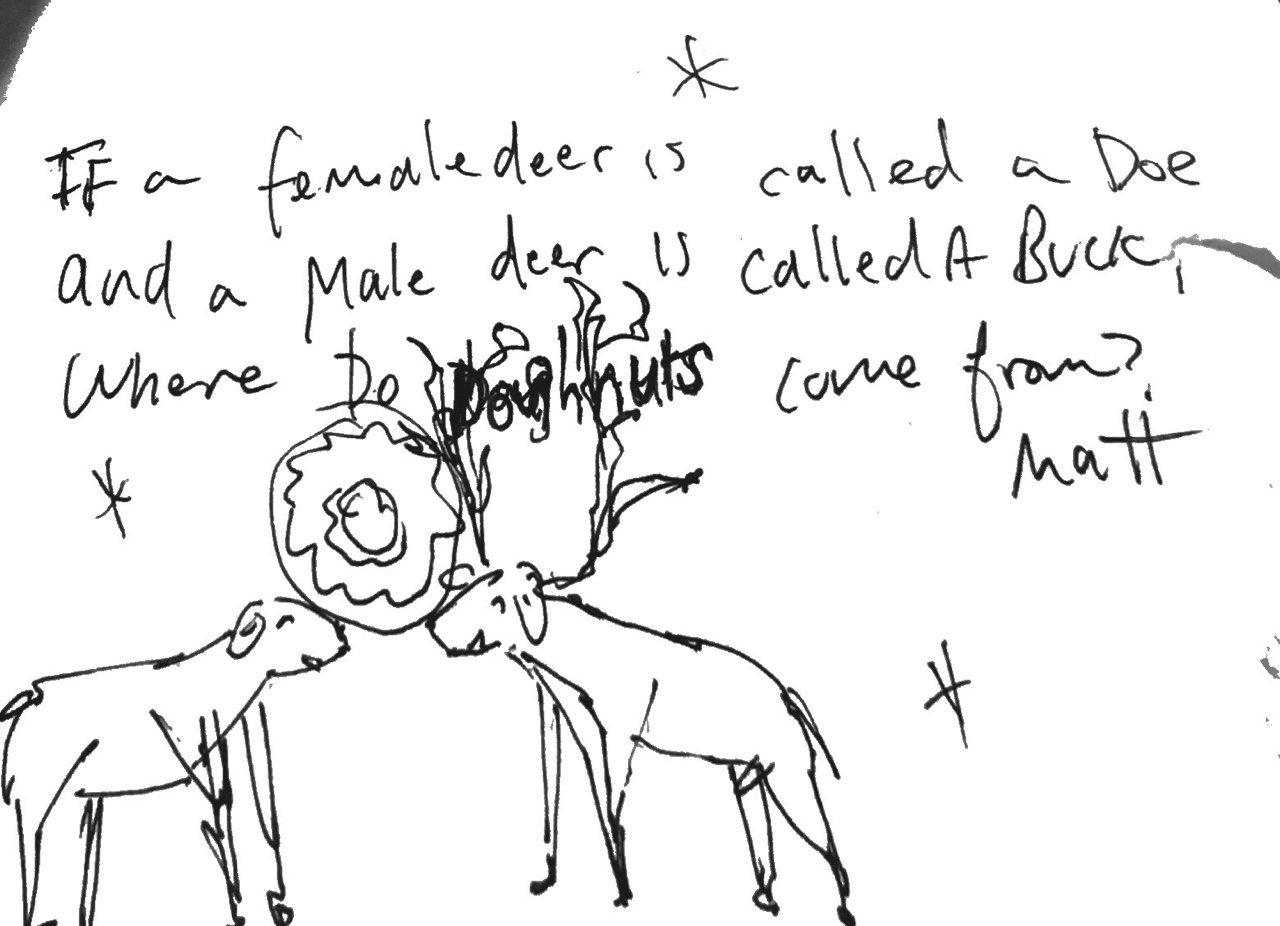 IF a female deer is called a Doe
and a Male deer is called A Buck,
Where Do Doughnuts come from?
Matt